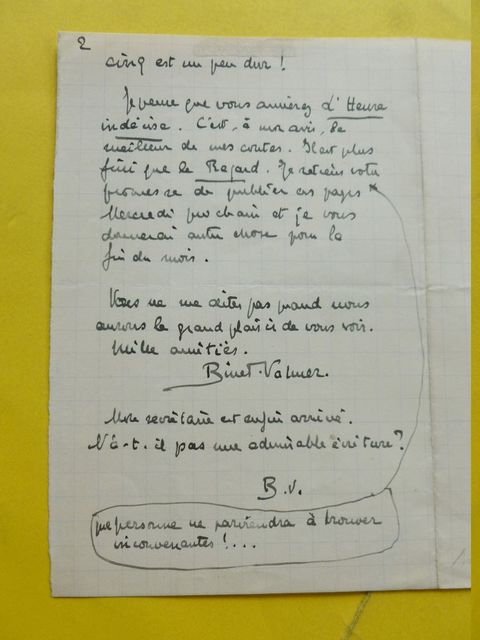 2
cinq est un peu dur !
Je pense que vous aimerez l'Heure
indécise. C'est, à mon avis, le
meilleur de mes contes. Il est plus
fini que le Regard. Je retiens votre
promesse de publier ces pages *
Mercredi prochain et je vous
donnerai autre chose pour la
fin du mois.
Vous ne me dites pas quand nous
aurons le grand plaisir de vous voir.
Mille amitiés.
Binet-Valmer.
Mon secrétaire est enfin arrivé.
N'a-t-il pas une admirable écriture ?
B.V.
que personne ne parviendra à trouver
inconvenantes !...